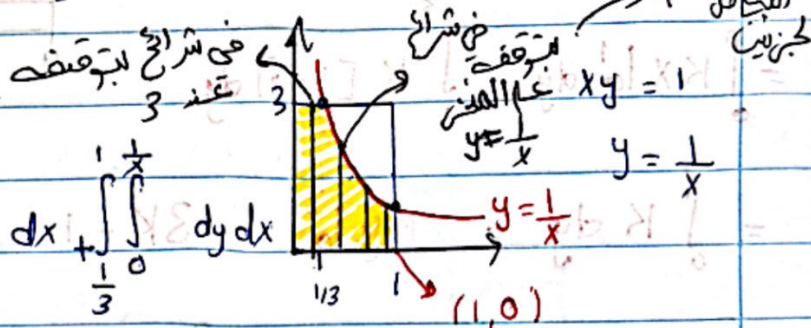 لجزئين
فى شرائح بتوقفه
عند 3
فى شرائح
بتوقفه
على المنحنى
y = 1/x
xy = 1
y = 1/x
3
y = 1/x
dx + ∫_{1/3}^{1} ∫_{0}^{1/x} dy dx
1/3
1
(1,0)